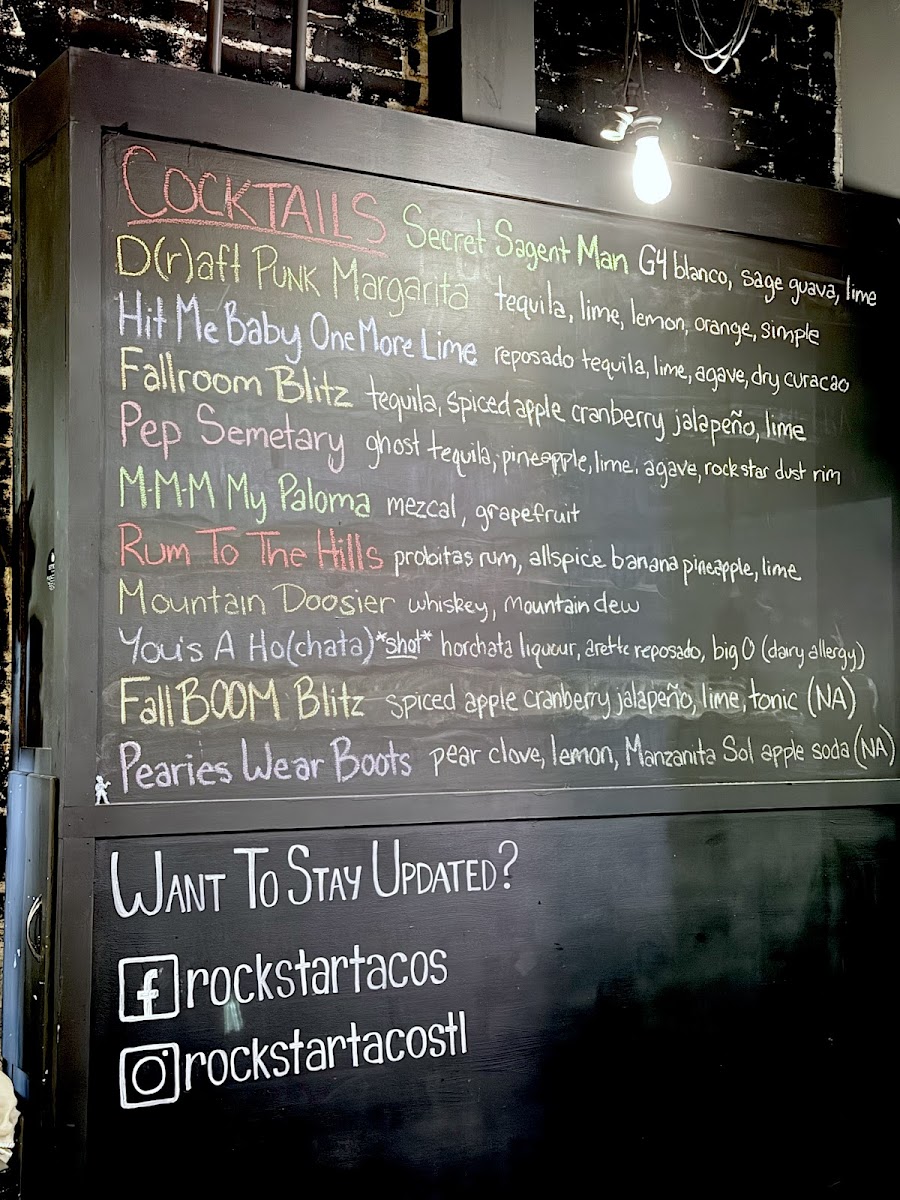 COCKTAILS Secret Sagent Man G4 blanco, sage guava, lime
D(r)aft Punk Margarita tequila, lime, lemon, orange, simple
Hit Me Baby One More Lime reposado tequila, lime, agave, dry curacao
Fallroom Blitz tequila, spiced apple cranberry jalapeño, lime
Pep Semetary ghost tequila, pineapple, lime, agave, rockstar dust rim
M-M-M My Paloma mezcal, grapefruit
Rum To The Hills probitas rum, allspice banana pineapple, lime
Mountain Doosier whiskey, mountain dew
You's A Ho(chata) *shot* horchata liqueur, arette reposado, big O (dairy allergy)
Fall BOOM Blitz spiced apple cranberry jalapeño, lime, tonic (NA)
Pearies Wear Boots pear clove, lemon, Manzanita Sol apple soda (NA)
WANT TO STAY UPDATED?
rockstartacos
rockstartacostl